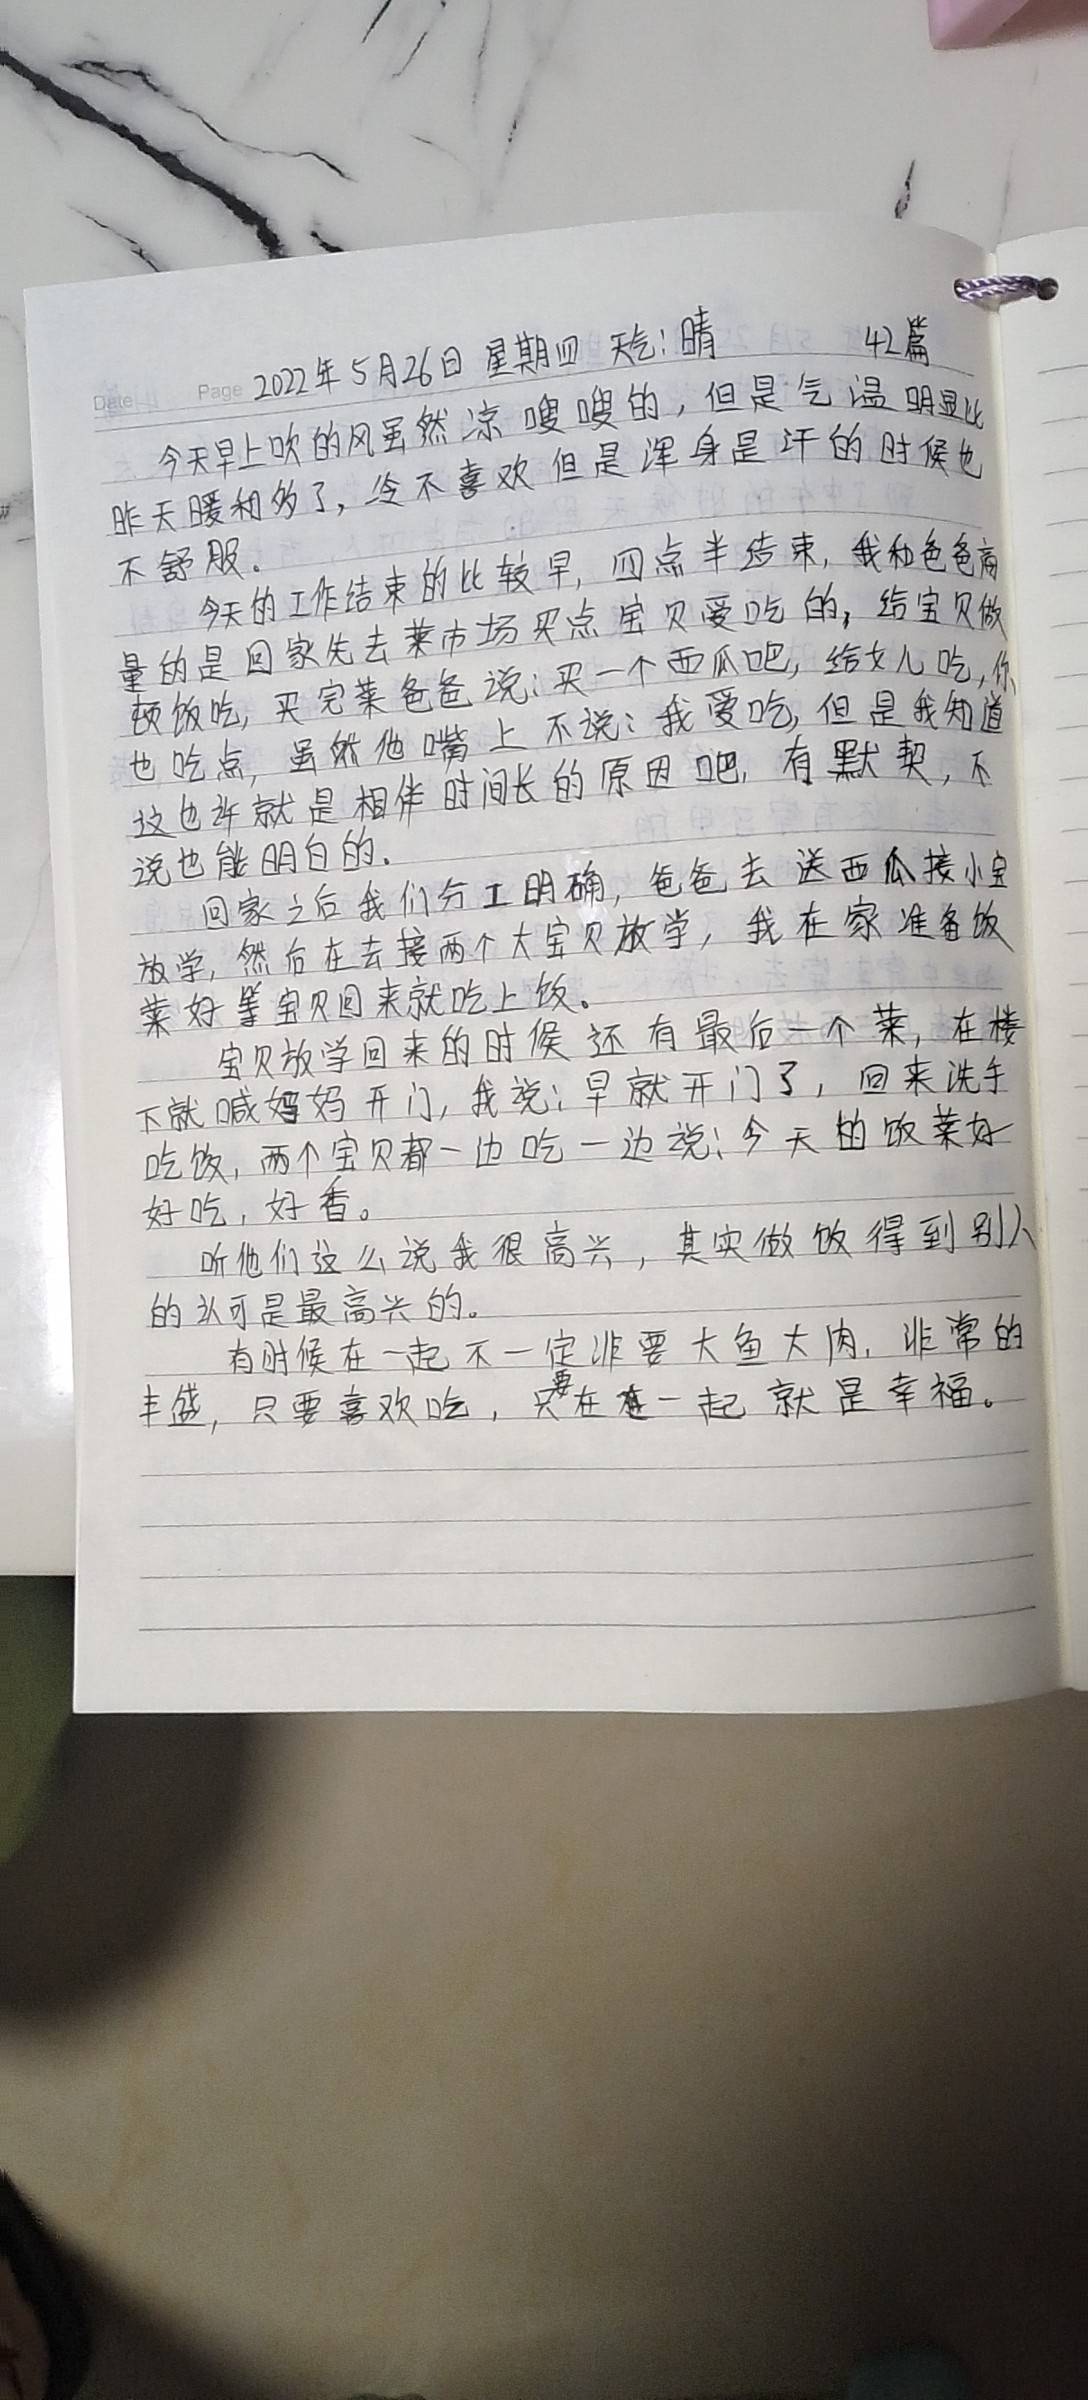 Date
Page 2022年5月26日 星期四 天气:晴 42篇
今天早上吹的风虽然凉嗖嗖的,但是气温明显比
昨天暖和多了,冷不喜欢但是浑身是汗的时候也
不舒服。
今天的工作结束的比较早,四点半结束,我和爸爸商
量的是回家先去菜市场买点宝贝爱吃的,给宝贝做
顿饭吃,买完菜爸爸说:买一个西瓜吧,给女儿吃,你
也吃点,虽然他嘴上不说:我爱吃,但是我知道
这也许就是相伴时间长的原因吧,有默契,不
说也能明白的.
回家之后我们分工明确,爸爸去送西瓜接小宝
放学,然后在去接两个大宝贝放学,我在家准备饭
菜好等宝贝回来就吃上饭。
宝贝放学回来的时候还有最后一个菜,在楼
下就喊妈妈开门,我说:早就开门了,回来洗手
吃饭,两个宝贝都一边吃一边说:今天的饭菜好
好吃,好香。
听他们这么说我很高兴,其实做饭得到别人
的认可是最高兴的。
有时候在一起不一定非要大鱼大肉.非常的
丰盛,只要喜欢吃,只要在一起就是幸福。